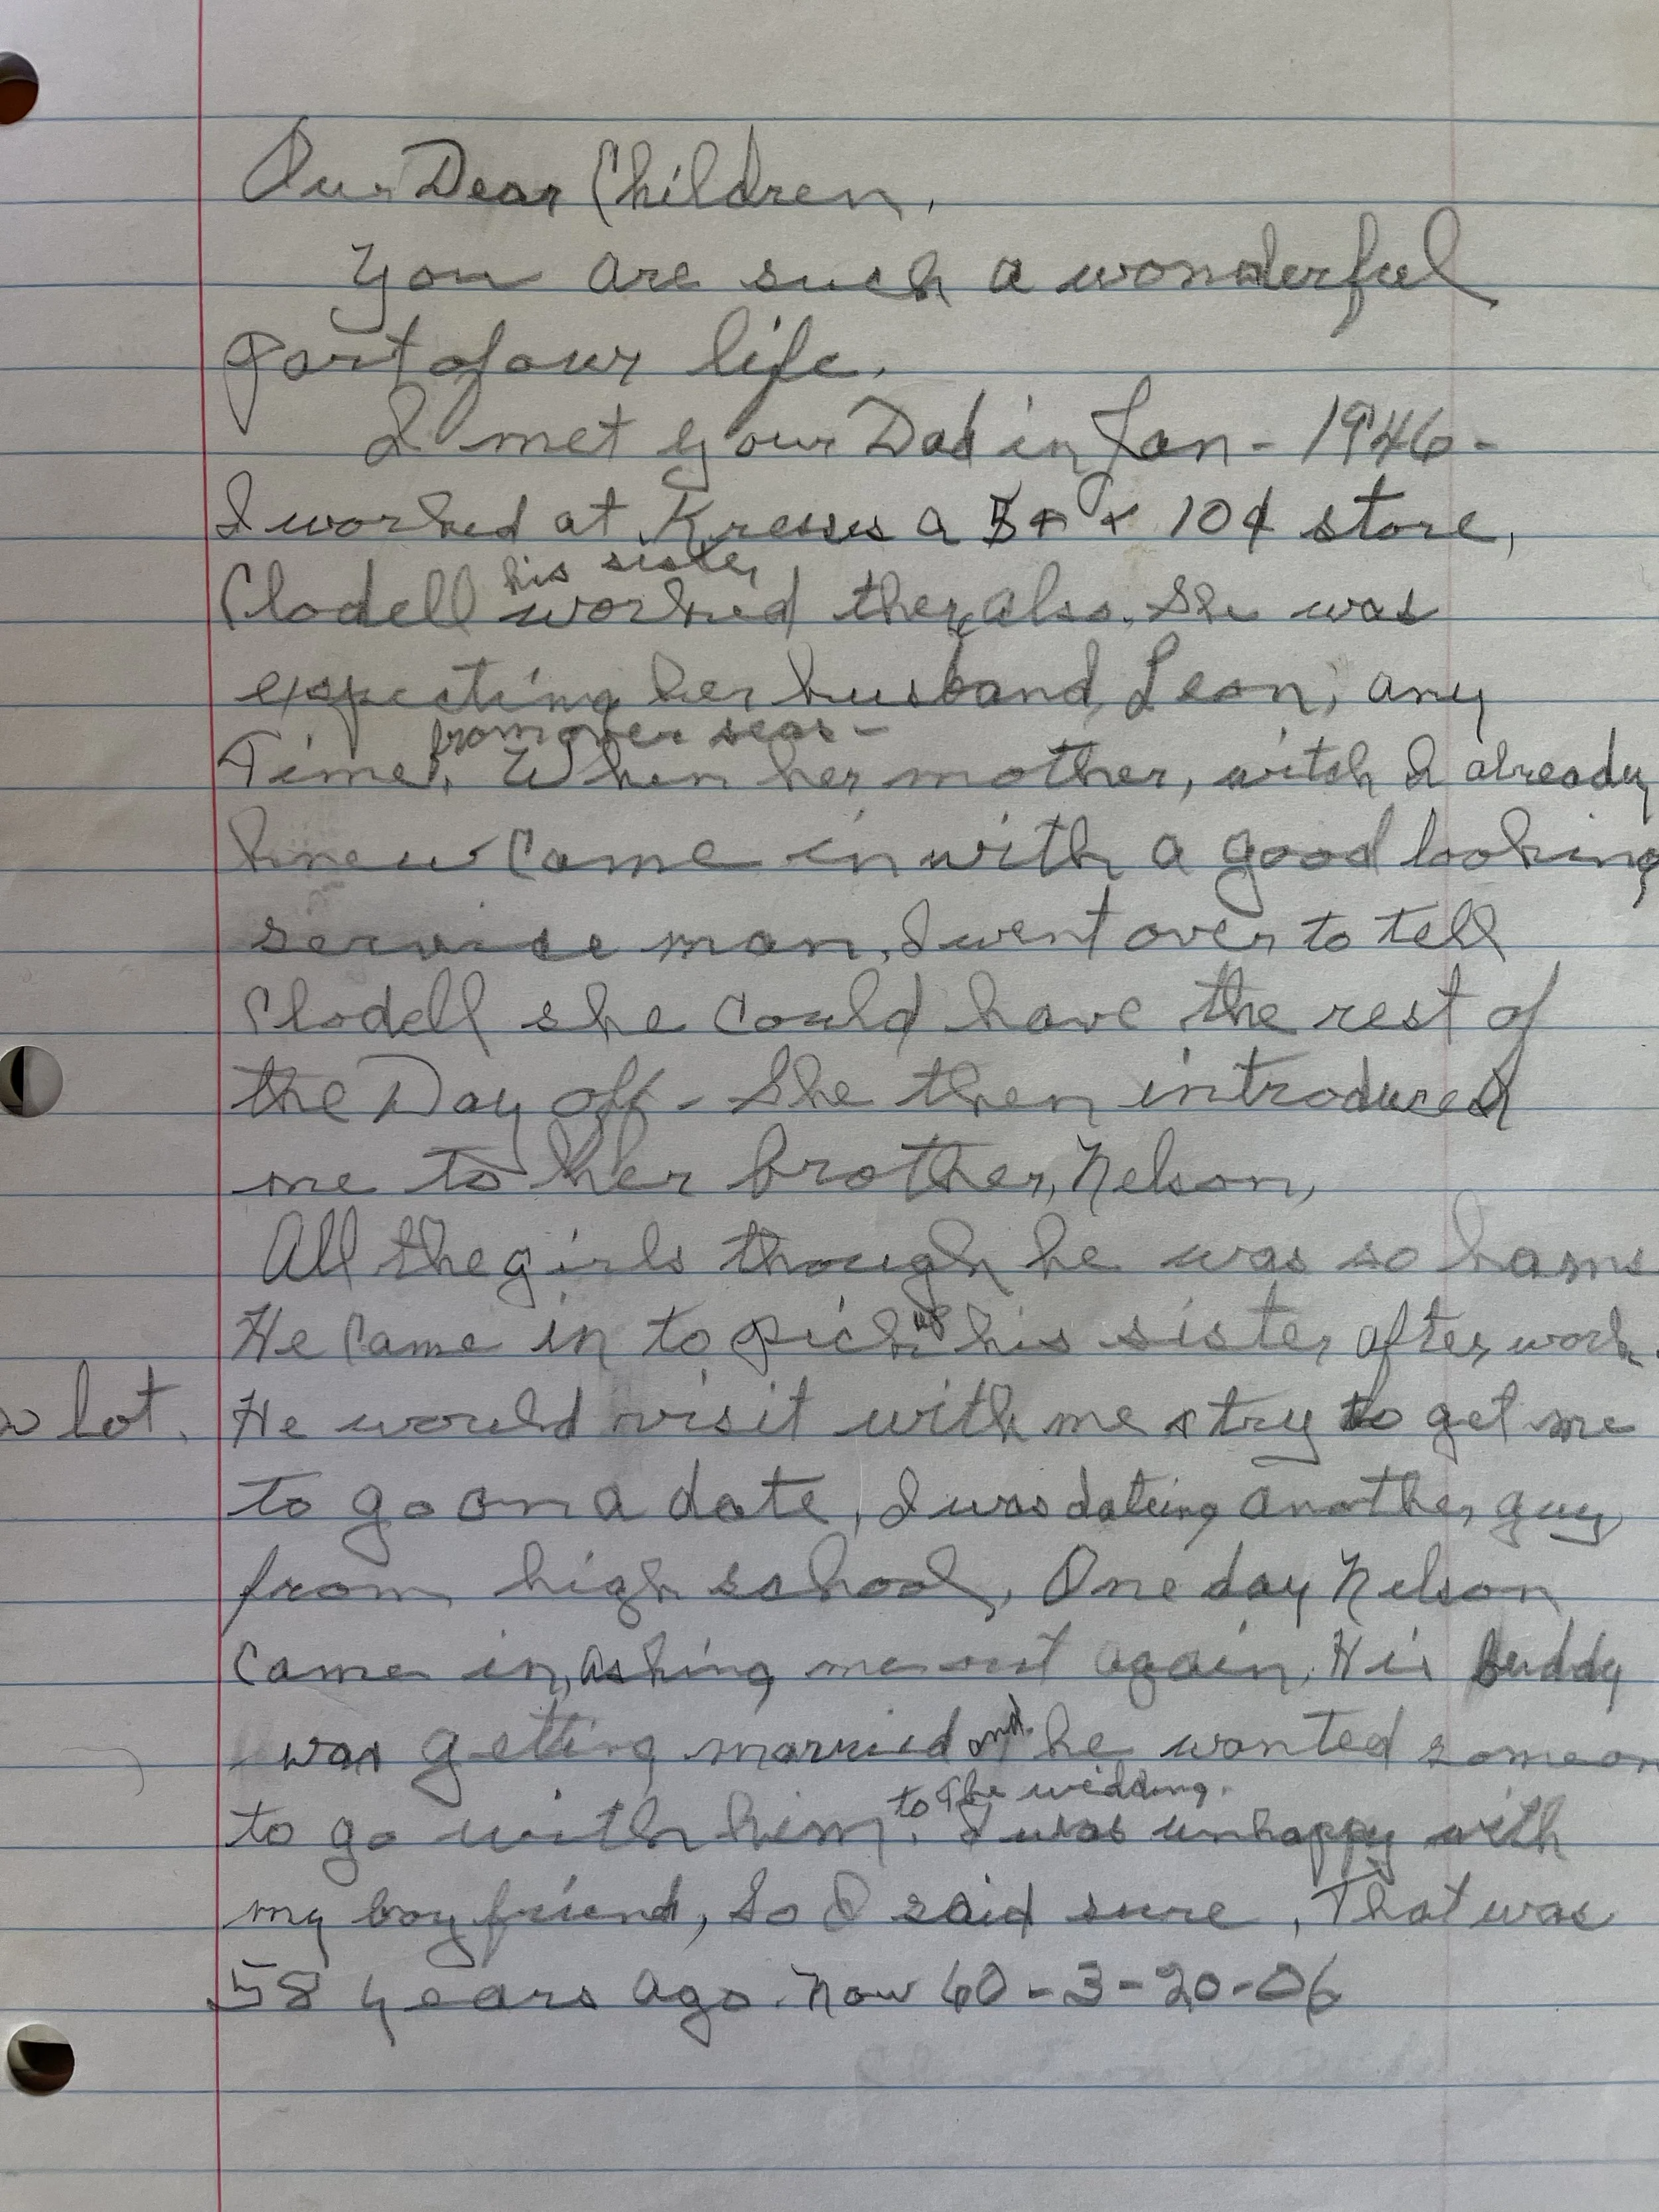 Our Dear Children,
You are such a wonderful
part of our life.
I met your Dad in Jan - 1946 -
I worked at Kresses a 5¢ & 10¢ store,
his sister
Clodell worked there also. She was
expecting her husband, Leon, any
from over seas -
Time. When her mother, witch I already
knew came in with a good looking
service man. I went over to tell
Clodell she could have the rest of
the Day off - She then introduced
me to her brother, Nelson,
All the girls though he was so hans
He came in to pick up his sister after work.
lot. He would visit with me & try to get me
to go on a date, I was dateing another guy
from high school, One day Nelson
came in, asking me out again. His Buddy
was getting married and he wanted someon
to the wedding.
to go with him. I was unhappy with
my boy friend, So I said sure, That was
58 years ago. Now 60 - 3-20-06